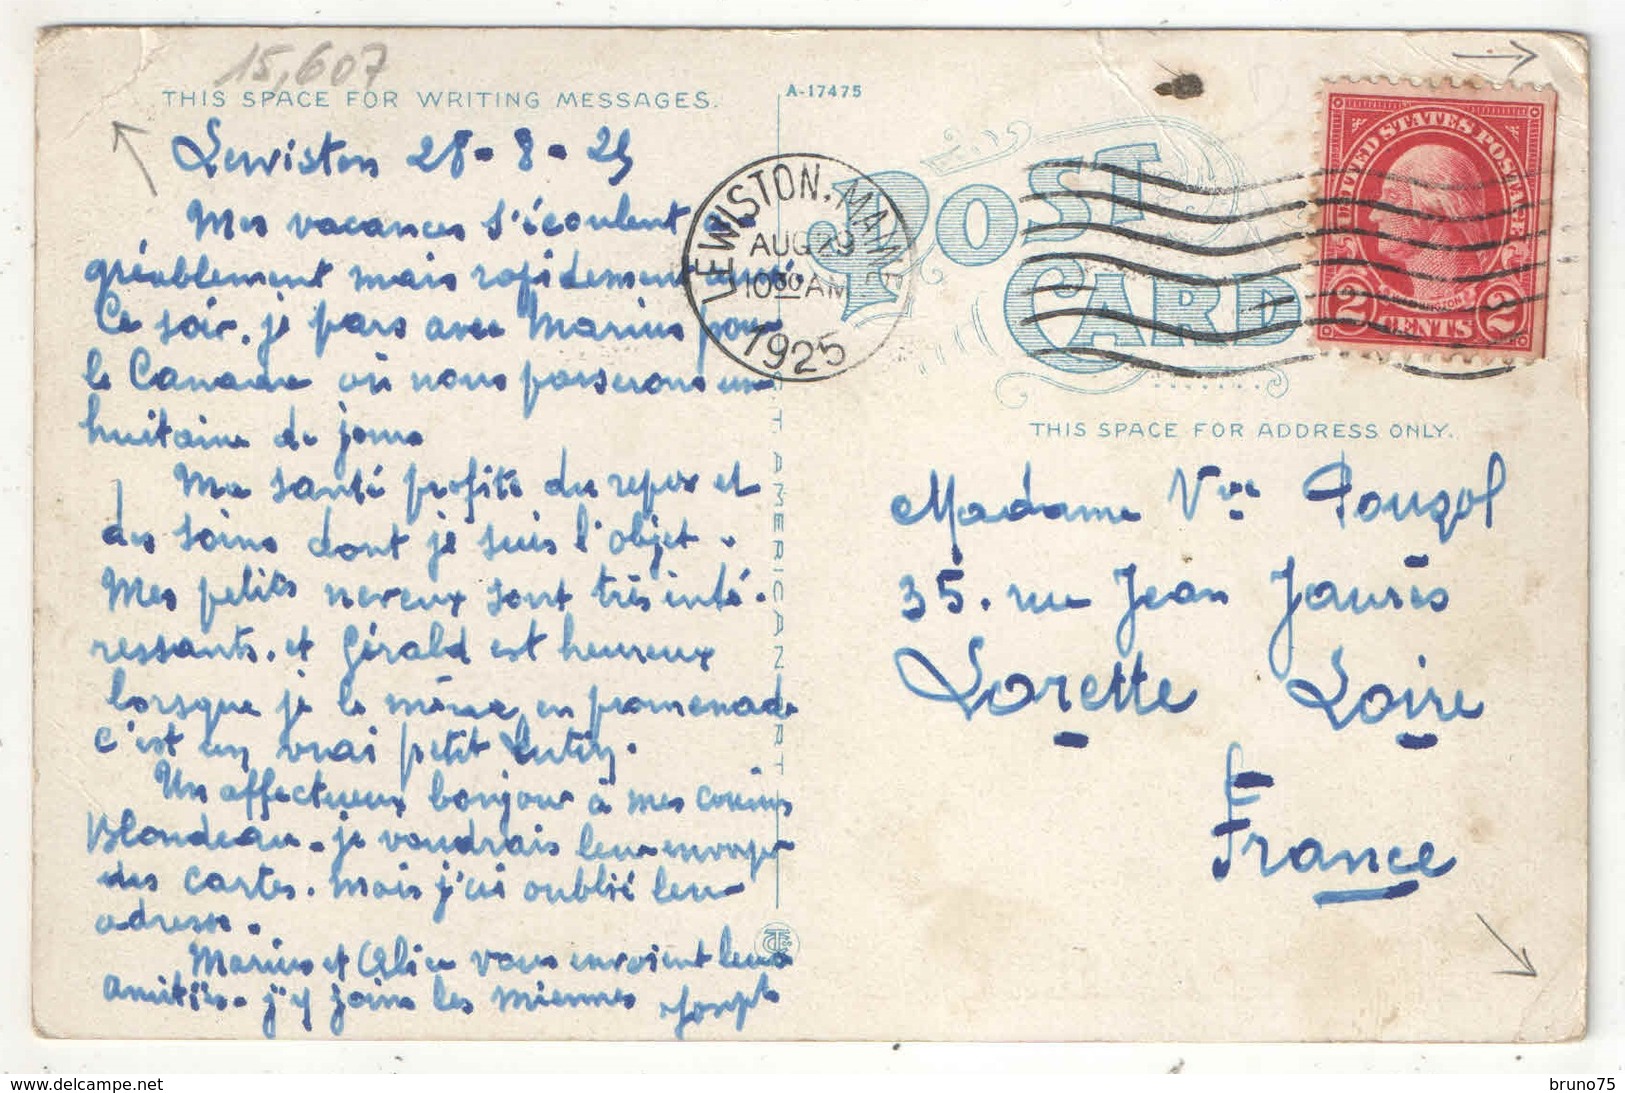 15,607
THIS SPACE FOR WRITING MESSAGES.
A-17475
Lewiston 28-8-25
Mes vacances s'écoulent a-
gréablement mais rapidement
Ce soir, je pars avec Marius pour
le Canada où nous passerons une
huitaine de jours
Ma santé profite du repos et
des soins dont je suis l'objet.
Mes petits neveux sont très inté-
ressants. et Gérald est heureux
lorsque je le mène en promenade
c'est un vrai petit lutin.
Un affectueux bonjour à mes cousins
Blondeau. je voudrais leur envoyer
des cartes. mais j'ai oublié leur
adresse.
Marius et Alice vous envoient leurs
amitiés. j'y joins les miennes Joseph
LEWISTON, MAINE
AUG 29
10 30 AM
1925
POST CARD
UNITED STATES POSTAGE
WASHINGTON
2 CENTS 2
THIS SPACE FOR ADDRESS ONLY.
Madame Vve Pouzol
35. rue Jean Jaurès
Lorette Loire
France
C.T. AMERICAN ART
delcampe.net
bruno75